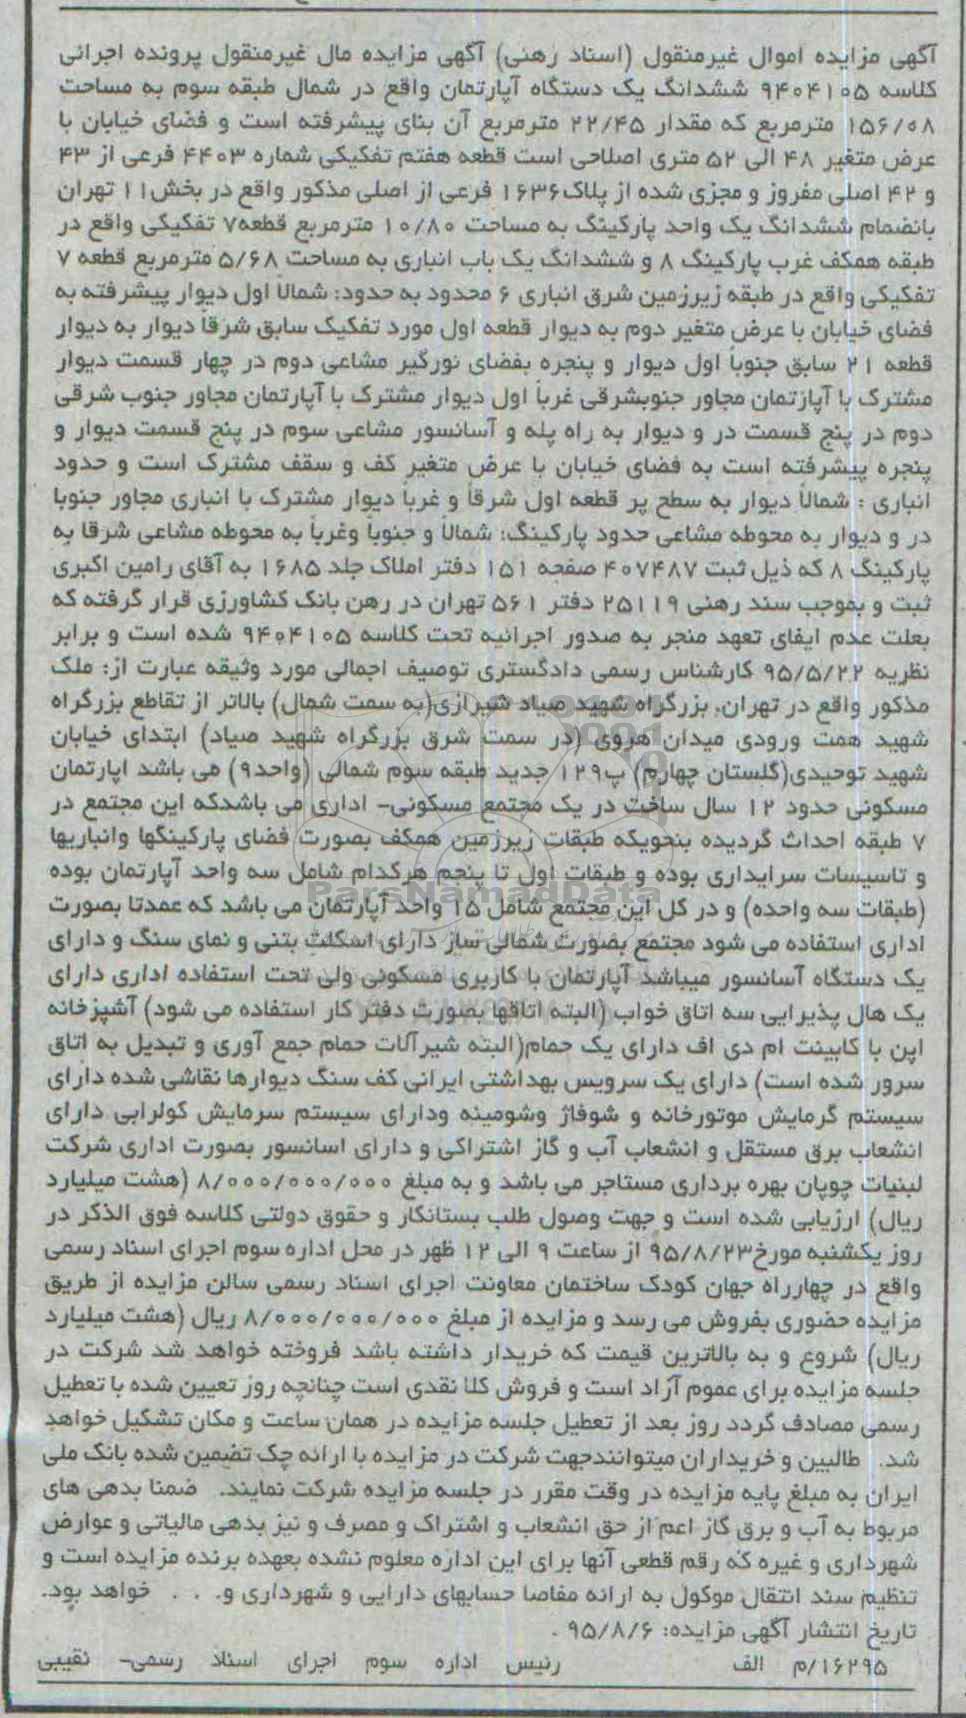 آگهی مزایده اموال غیرمنقول (اسناد رهنی) آگهی مزایده مال غیرمنقول پرونده اجرائی
کلاسه ۹۴۰۴۱۰۵ ششدانگ یک دستگاه آپارتمان واقع در شمال طبقه سوم به مساحت
۱۵۶/۰۸ مترمربع که مقدار ۲۲/۴۵ مترمربع آن بنای پیشرفته است و فضای خیابان با
عرض متغیر ۴۸ الی ۵۲ متری اصلاحی است قطعه هفتم تفکیکی شماره ۴۴۰۳ فرعی از ۴۳
و ۴۲ اصلی مفروز و مجزی شده از پلاک۱۶۳۶ فرعی از اصلی مذکور واقع در بخش۱۱ تهران
بانضمام ششدانگ یک واحد پارکینگ به مساحت ۱۰/۸۰ مترمربع قطعه۷ تفکیکی واقع در
طبقه همکف غرب پارکینگ ۸ و ششدانگ یک باب انباری به مساحت ۵/۶۸ مترمربع قطعه ۷
تفکیکی واقع در طبقه زیرزمین شرق انباری ۶ محدود به حدود: شمالا اول دیوار پیشرفته به
فضای خیابان با عرض متغیر دوم به دیوار قطعه اول مورد تفکیک سابق شرقاً دیوار به دیوار
قطعه ۲۱ سابق جنوبا اول دیوار و پنجره بفضای نورگیر مشاعی دوم در چهار قسمت دیوار
مشترک با آپازتمان مجاور جنوبشرقی غرباً اول دیوار مشترک با آپارتمان مجاور جنوب شرقی
دوم در پنج قسمت در و دیوار به راه پله و آسانسور مشاعی سوم در پنج قسمت دیوار و
پنجره پیشرفته است به فضای خیابان با عرض متغیر کف و سقف مشترک است و حدود
انباری : شمالاً دیوار به سطح پر قطعه اول شرقاً و غرباً دیوار مشترک با انباری مجاور جنوبا
در و دیوار به محوطه مشاعی حدود پارکینگ: شمالاً و جنوباً وغرباً به محوطه مشاعی شرقا به
پارکینگ ۸ که ذیل ثبت ۴۰۷۴۸۷ صفحه ۱۵۱ دفتر املاک جلد ۱۶۸۵ به آقای رامین اکبری
ثبت و بموجب سند رهنی ۲۵۱۱۹ دفتر ۵۶۱ تهران در رهن بانک کشاورزی قرار گرفته که
بعلت عدم ایفای تعهد منجر به صدور اجرائیه تحت کلاسه ۹۴۰۴۱۰۵ شده است و برابر
نظریه ۹۵/۵/۲۲ کارشناس رسمی دادگستری توصیف اجمالی مورد وثیقه عبارت از: ملک
مذکور واقع در تهران، بزرگراه شهید صیاد شیرازی(به سمت شمال) بالاتر از تقاطع بزرگراه
شهید همت ورودی میدان هروی (در سمت شرق بزرگراه شهید صیاد) ابتدای خیابان
شهید توحیدی(گلستان چهارم) پ۱۲۹ جدید طبقه سوم شمالی (واحد۹) می باشد اپارتمان
مسکونی حدود ۱۲ سال ساخت در یک مجتمع مسکونی- اداری می باشدکه این مجتمع در
۷ طبقه احداث گردیده بنحویکه طبقات زیرزمین همکف بصورت فضای پارکینگها وانباریها
و تاسیسات سرایداری بوده و طبقات اول تا پنجم هرکدام شامل سه واحد آپارتمان بوده
ParsNamadData
(طبقات سه واحده) و در کل این مجتمع شامل ۱۵ واحد آپارتمان می باشد که عمدتا بصورت
اداری استفاده می شود مجتمع بصورت شمالی ساز دارای اسکلت بتنی و نمای سنگ و دارای
یک دستگاه آسانسور میباشد آپارتمان با کاربری مسکونی ولی تحت استفاده اداری دارای
یک هال پذیرایی سه اتاق خواب (البته اتاقها بصورت دفتر کار استفاده می شود) آشپزخانه
اپن با کابینت ام دی اف دارای یک حمام(البته شیرآلات حمام جمع آوری و تبدیل به اتاق
سرور شده است) دارای یک سرویس بهداشتی ایرانی کف سنگ دیوارها نقاشی شده دارای
سیستم گرمایش موتورخانه و شوفاژ وشومینه ودارای سیستم سرمایش کولرابی دارای
انشعاب برق مستقل و انشعاب آب و گاز اشتراکی و دارای اسانسور بصورت اداری شرکت
لبنیات چوپان بهره برداری مستاجر می باشد و به مبلغ ۸/۰۰۰/۰۰۰/۰۰۰ (هشت میلیارد
ریال) ارزیابی شده است و جهت وصول طلب بستانکار و حقوق دولتی کلاسه فوق الذکر در
روز یکشنبه مورخ۹۵/۸/۲۳ از ساعت ۹ الی ۱۲ ظهر در محل اداره سوم اجرای اسناد رسمی
واقع در چهارراه جهان کودک ساختمان معاونت اجرای اسناد رسمی سالن مزایده از طریق
مزایده حضوری بفروش می رسد و مزایده از مبلغ ۸/۰۰۰/۰۰۰/۰۰۰ ریال (هشت میلیارد
ریال) شروع و به بالاترین قیمت که خریدار داشته باشد فروخته خواهد شد شرکت در
جلسه مزایده برای عموم آزاد است و فروش کلا نقدی است چنانچه روز تعیین شده با تعطیل
رسمی مصادف گردد روز بعد از تعطیل جلسه مزایده در همان ساعت و مکان تشکیل خواهد
شد. طالبین و خریداران میتوانندجهت شرکت در مزایده با ارائه چک تضمین شده بانک ملی
ایران به مبلغ پایه مزایده در وقت مقرر در جلسه مزایده شرکت نمایند. ضمنا بدهی های
مربوط به آب و برق گاز اعم از حق انشعاب و اشتراک و مصرف و نیز بدهی مالیاتی و عوارض
شهرداری و غیره که رقم قطعی آنها برای این اداره معلوم نشده بعهده برنده مزایده است و
تنظیم سند انتقال موکول به ارائه مفاصا حسابهای دارایی و شهرداری و. . . خواهد بود.
تاریخ انتشار آگهی مزایده: ۹۵/۸/۶ .
۱۶۲۹۵/م الف رئیس اداره سوم اجرای اسناد رسمی- نقیبی